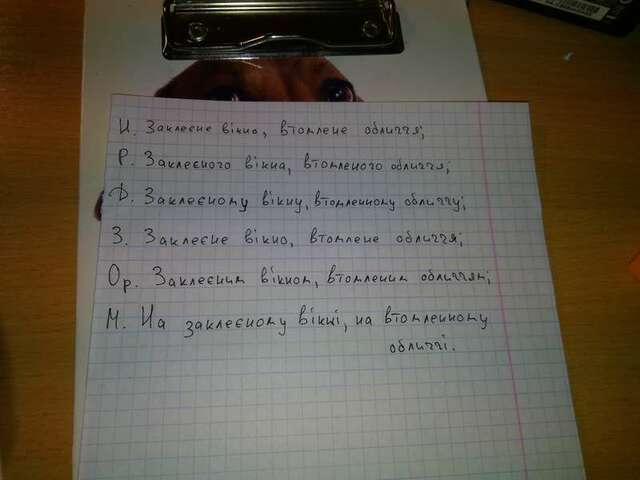 И. Заклеєне вікно, втомлене обличчя;
Р. Заклеєного вікна, втомленого обличчя;
Д. Заклеєному вікну, втомленному обличчу;
З. Заклеєне вікно, втомлене обличчя;
Ор. Заклеєним вікном, втомленим обличчям;
М. На заклеєному вікні, на втомленному
обличчі.